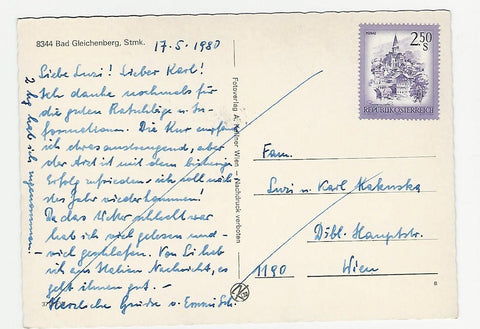 8344 Bad Gleichenberg, Stmk.
17.5.1980
Liebe Susi! Lieber Karl!
Ich danke nochmals für
die guten Ratschläge u. In-
formationen. Die Kur empfinde
ich etwas anstrengend, aber
der Arzt ist mit dem bisherigen
Erfolg zufrieden - ich soll nächstes
Jahr wiederkommen!
Da das Wetter schlecht war
hab ich viel gelesen und -
viel geschlafen. Von Li hab
ich aus Italien Nachricht, es
geht ihnen gut. -
Herzliche Grüße v.
2 kg hab ich zugenommen!
Fotoverlag A. Wien - Nachdruck verboten
MÜRAU
2.50
S
REPUBLIK ÖSTERREICH
Fam.
Susi u. Karl
Döbl. Hauptstr.
1190 Wien